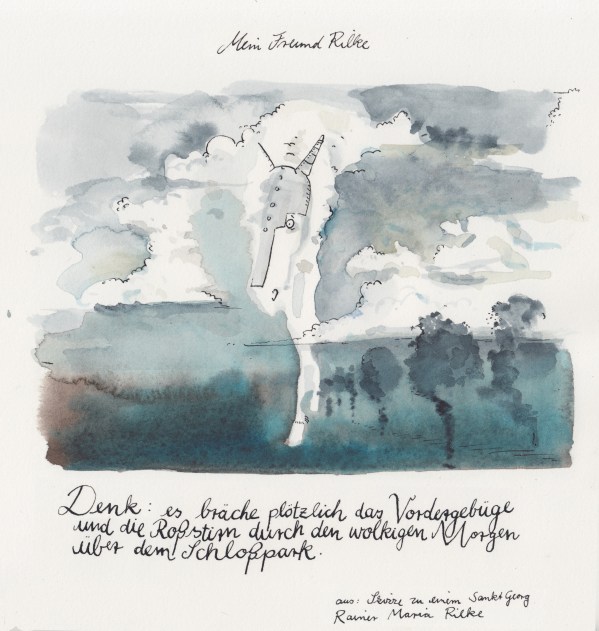 Mein Freund Rilke
Denk: es bräche plötzlich das Vordergebüge
und die Roßstirn durch den wolkigen Morgen
über dem Schloßpark.
aus: Skizze zu einem Sankt Georg
Rainer Maria Rilke